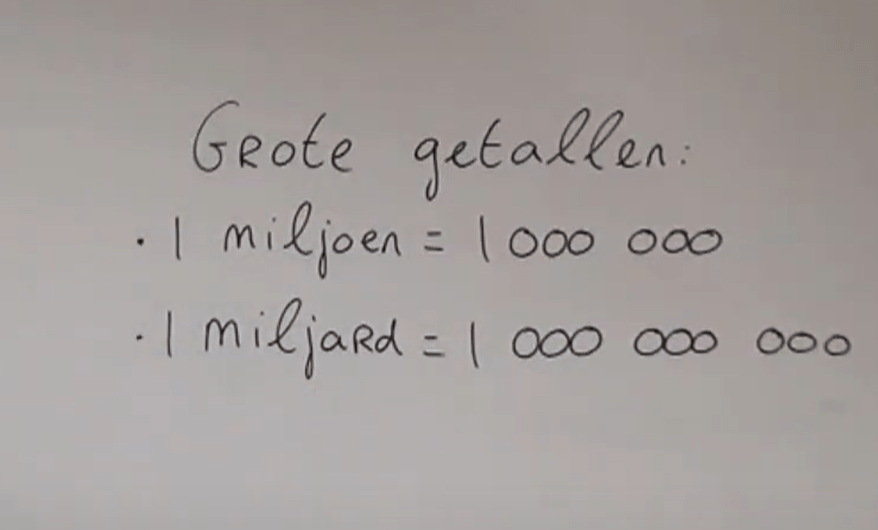 Grote getallen:
· 1 miljoen = 1 000 000
· 1 miljard = 1 000 000 000